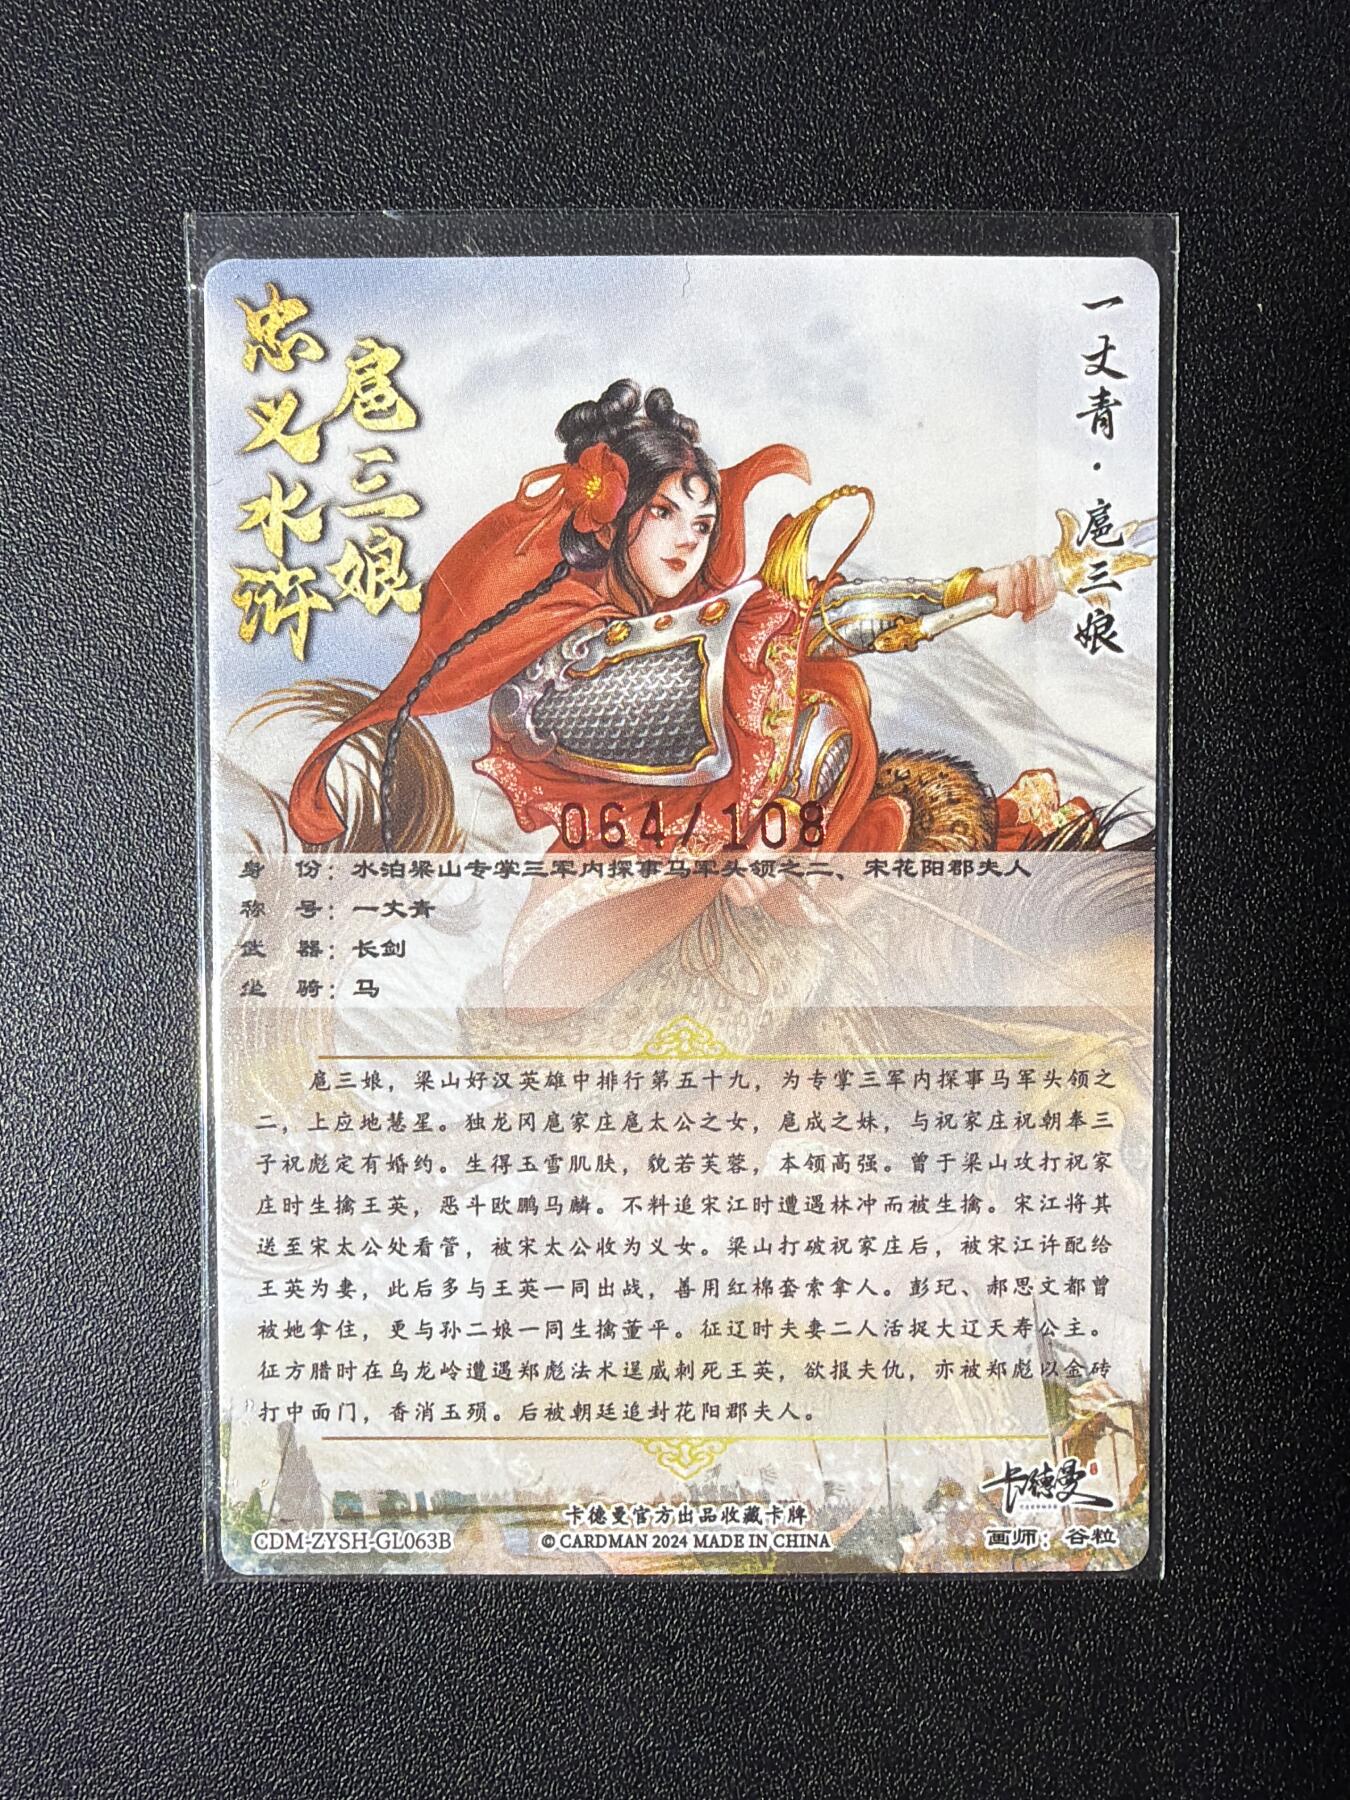 忠义水浒
扈三娘
一丈青·扈三娘
064/108
身 份：水泊梁山专掌三军内探事马军头领之二、宋花阳郡夫人
称 号：一丈青
武 器：长剑
坐 骑：马
扈三娘，梁山好汉英雄中排行第五十九，为专掌三军内探事马军头领之
二，上应地慧星。独龙冈扈家庄扈太公之女，扈成之妹，与祝家庄祝朝奉三
子祝彪定有婚约。生得玉雪肌肤，貌若芙蓉，本领高强。曾于梁山攻打祝家
庄时生擒王英，恶斗欧鹏马麟。不料追宋江时遭遇林冲而被生擒。宋江将其
送至宋太公处看管，被宋太公收为义女。梁山打破祝家庄后，被宋江许配给
王英为妻，此后多与王英一同出战，善用红棉套索拿人。彭玘、郝思文都曾
被她拿住，更与孙二娘一同生擒董平。征辽时夫妻二人活捉大辽天寿公主。
征方腊时在乌龙岭遭遇郑彪法术逞威刺死王英，欲报夫仇，亦被郑彪以金砖
打中面门，香消玉殒。后被朝廷追封花阳郡夫人。
卡德曼
CDM-ZYSH-GL063B
卡德曼官方出品收藏卡牌
© CARDMAN 2024 MADE IN CHINA
画师：谷粒